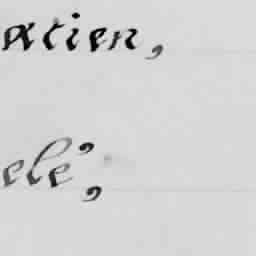 atien,
ele,